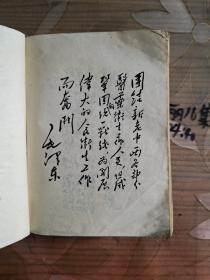 团结新老中西各部分
医药卫生工作人员，组成
巩固的统一战线，为开展
伟大的人民卫生工作
而奋斗
毛泽东